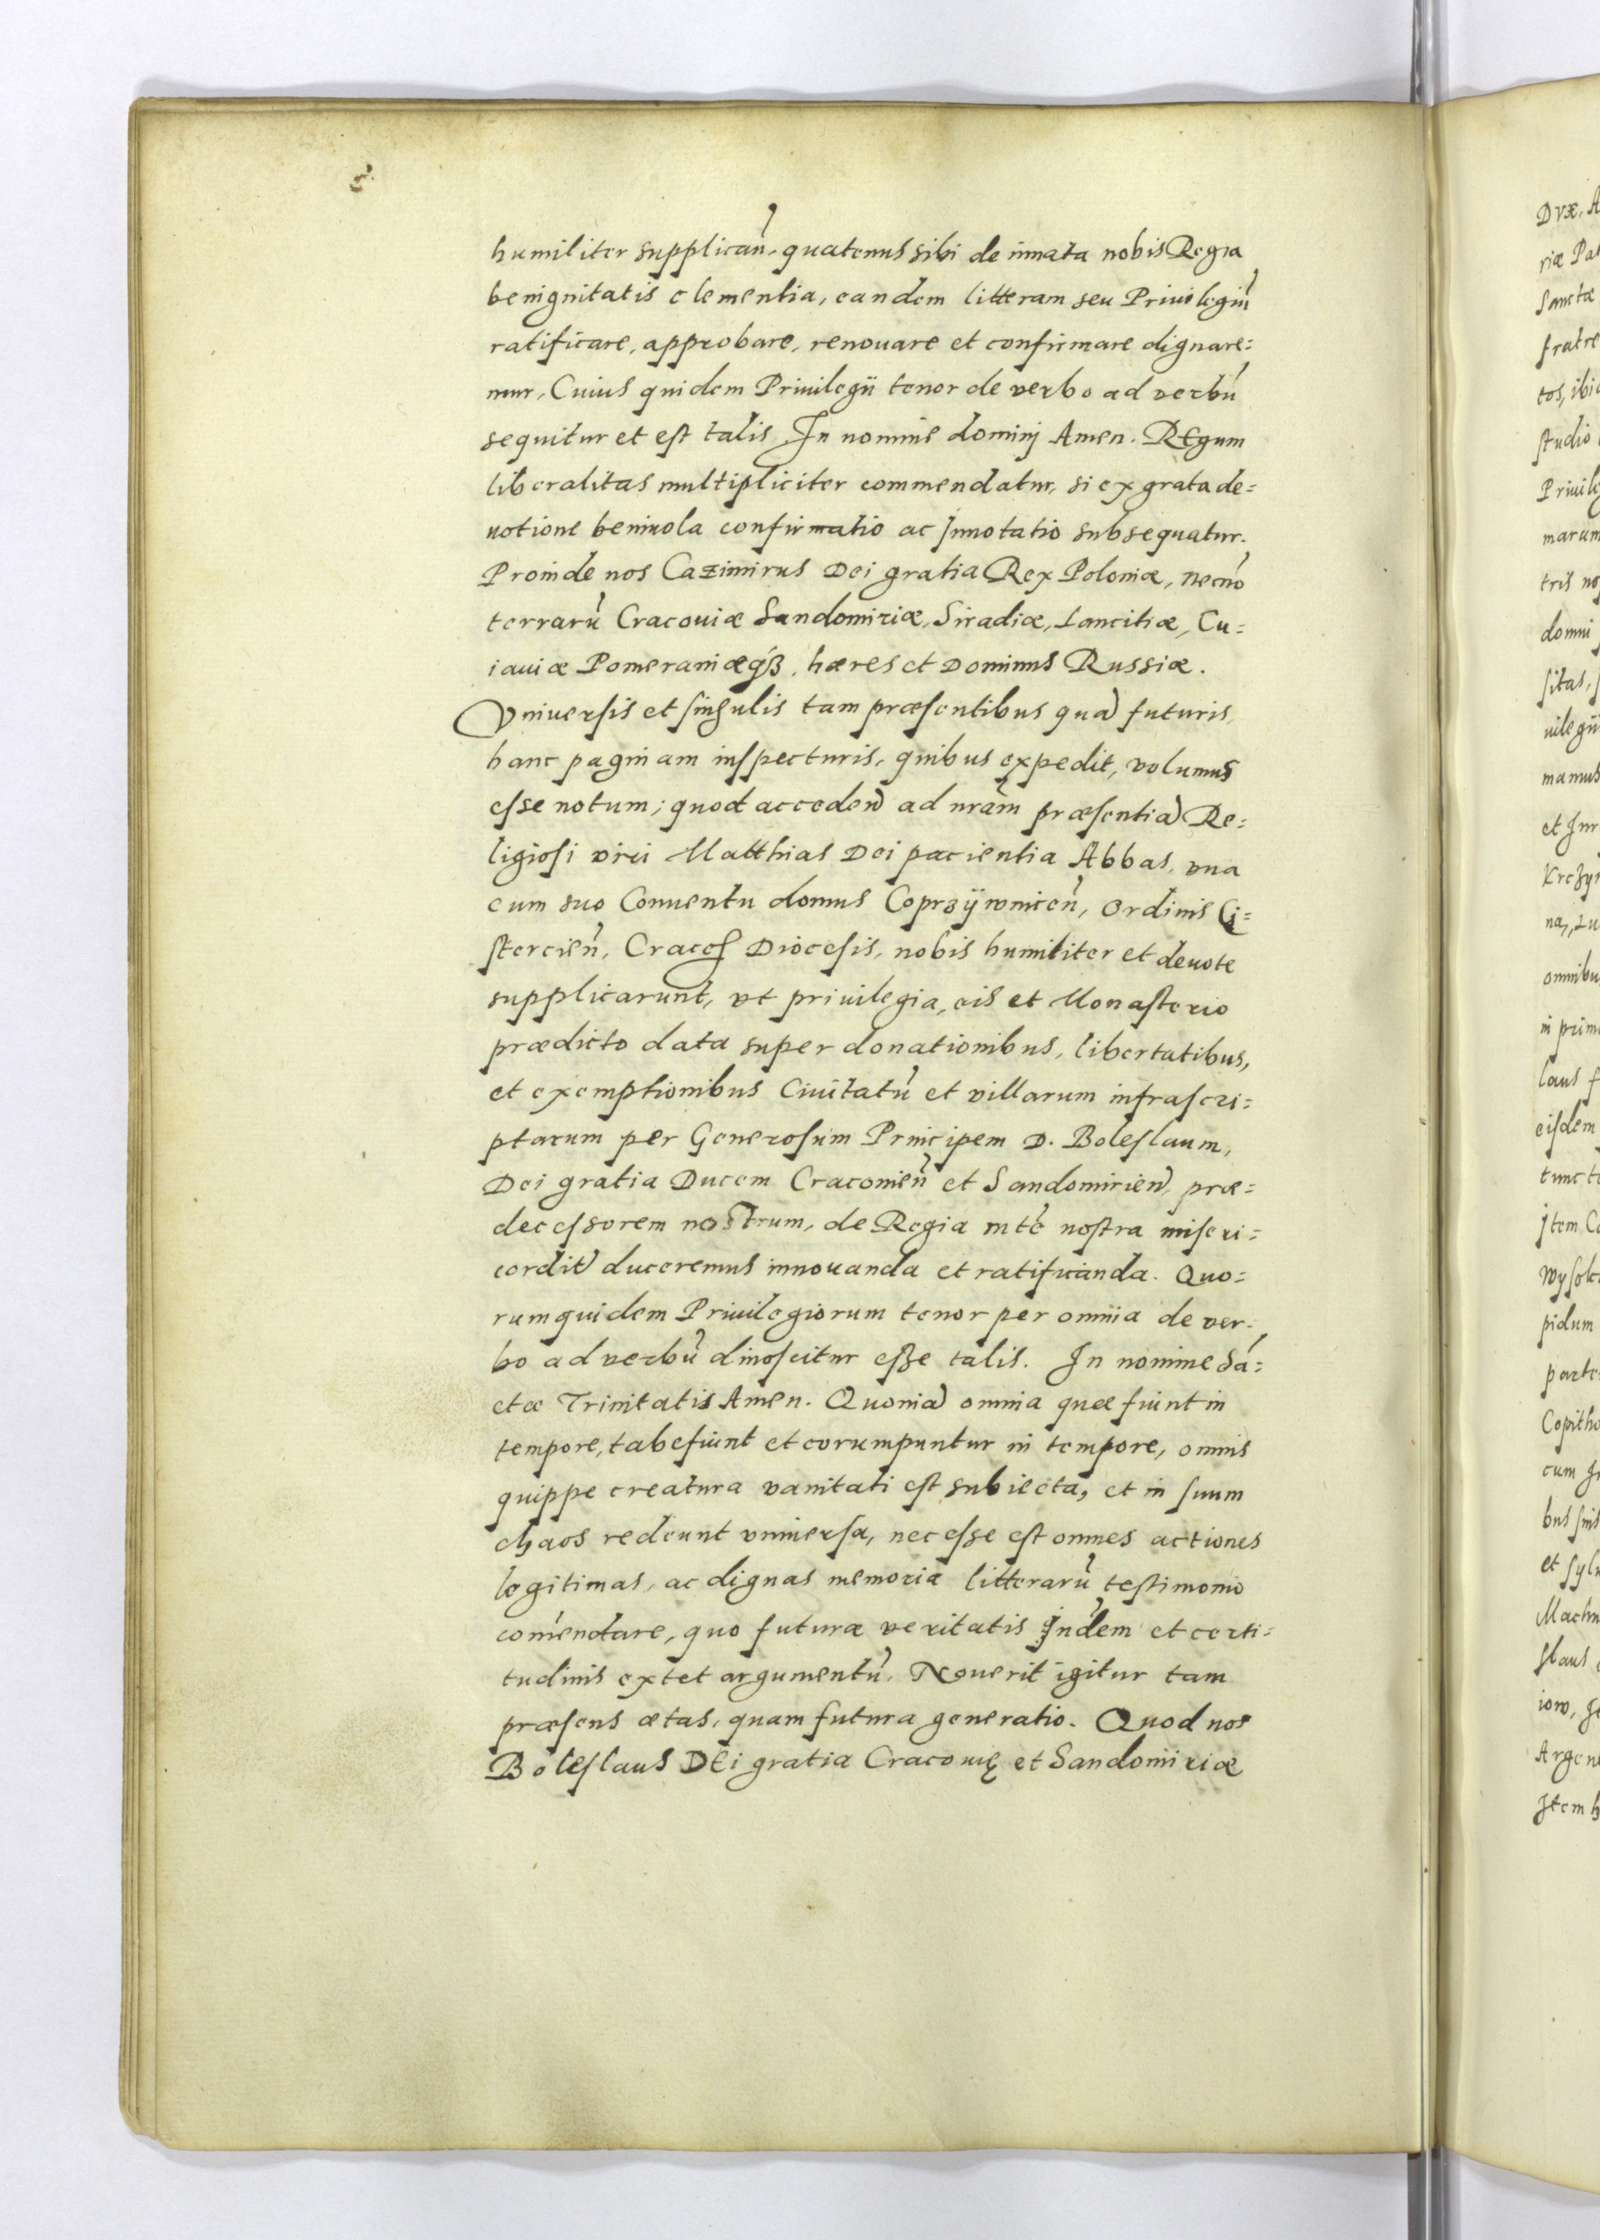 humiliter supplicań, quatenus sibi de innata nobis Regia
benignitatis clementia, eandem litteram seu Priuilegiū
ratificare, approbare, renouare et confirmare dignare=
mur, Cuius quidem Priuilegii tenor de verbo ad verbū
sequitur et est talis In nomine dominj Amen. REgum
liberalitas multipliciter commendatur, si ex grata de=
uotione beniuola confirmatio ac Innotatio subsequatur.
Proinde nos Cazimirus Dei gratia Rex Poloniæ, necnō
terrarū Cracouiæ Sandomiriæ, Siradiæ, Lancitiæ, Cu=
iauiæ Pomeraniæqȝ, hæres et Dominus Russiæ.
Vniuersis et singulis tam præsentibus quā futuris,
hanc paginam inspecturis, quibus expedit, volumus
esse notum; quod acceden̄ ad nrām præsentiā Re=
ligiosi viri Matthias Dei pacientia Abbas, vna
cum suo Conuentu domus Coprzÿwnicen̄, Ordinis Ci=
stercien̄, Craceꝭ Diocesis, nobis humiliter et deuote
supplicarunt, vt priuilegia, eis et Monasterio
prædicto data super donationibus, libertatibus,
et exemptionibus Ciuitatū et villarum infrascri=
ptarum per Generosum Principem D. Boleslaum,
Dei gratia Ducem Cracouien̄ et Sandomirien̄, præ=
decessorem nostrum, de Regia mtē nostra miseri=
corditʼ duceremus innouanda et ratificanda. Quo=
rum quidem Priuilegiorum tenor per omnia de ver=
bo ad verbū dinoscitur esse talis. In nomine Sā=
ctæ Trinitatis Amen. Quoniā omnia quæ fiunt in
tempore, tabefiunt et corumpuntur in tempore, omnis
quippe creatura vanitati est subiecta, et in suum
chaos redeunt vniuersa, necesse est omnes actiones
legitimas, ac dignas memoria litterarū testimonio
com̄endare, quo futuræ veritatis Ind̄em et certi=
tudinis extet argumentū. Nouerit igitur tam
præsens ætas, quam futura generatio. Quod nos
Boleslaus DEi gratia Cracouię et Sandomiriæ
Dvx, A
riæ Pat
Sanctæ
fratre
tos, ibi
studio
Priuile
marum
tris no
domni
sitas,
uilegii
mamus
et Inr
Krczyn
na, Lu
omnibu
in prim
laus f
eisdem
tunc t
Item C
Wysok
pidum
parte
Copitho
cum I
bus suis
et sylu
Machn
slaus
iow, I
Argen
Item h